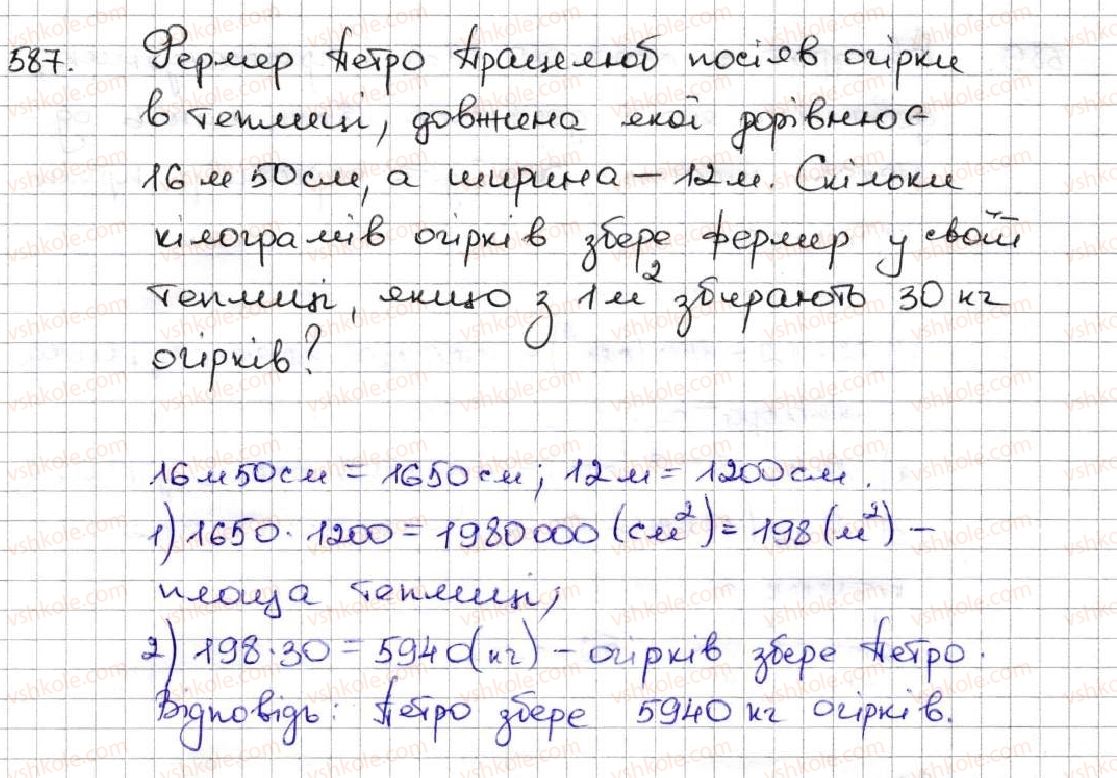 587. Фермер Петро Працелюб посіяв огірки
в теплиці, довжина якої дорівнює
16 м 50 см, а ширина – 12 м. Скільки
кілограмів огірків збере фермер у своїй
теплиці, якщо з 1 м² збирають 30 кг
огірків?
16 м 50 см = 1650 см; 12 м = 1200 см.
1) 1650 · 1200 = 1980000 (см²) = 198 (м²) –
площа теплиці;
2) 198 · 30 = 5940 (кг) – огірків збере Петро.
Відповідь: Петро збере 5940 кг огірків.